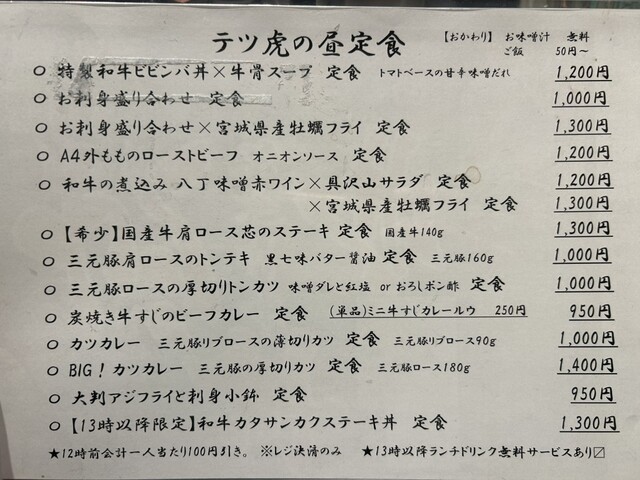 テツ虎の昼定食
【おかわり】 お味噌汁 無料
ご飯 50円〜
○ 特製和牛ビビンバ丼×牛骨スープ 定食 トマトベースの甘辛味噌だれ 1,200円
○ お刺身盛り合わせ 定食 1,000円
○ お刺身盛り合わせ×宮城県産牡蠣フライ 定食 1,300円
○ A4外もものローストビーフ オニオンソース 定食 1,200円
○ 和牛の煮込み 八丁味噌赤ワイン×具沢山サラダ 定食 1,200円
×宮城県産牡蠣フライ 定食 1,300円
○ 【希少】国産牛肩ロース芯のステーキ 定食 国産牛140g 1,300円
○ 三元豚肩ロースのトンテキ 黒七味バター醤油 定食 三元豚160g 1,000円
○ 三元豚ロースの厚切りトンカツ 味噌ダレと紅塩 or おろしポン酢 定食 1,000円
○ 炭焼き牛すじのビーフカレー 定食 (単品)ミニ牛すじカレールウ 250円 950円
○ カツカレー 三元豚リブロースの薄切りカツ 定食 三元豚リブロース90g 1,000円
○ BIG！カツカレー 三元豚の厚切りカツ 定食 三元豚ロース180g 1,400円
○ 大判アジフライと刺身小鉢 定食 950円
○ 【13時以降限定】和牛カタサンカクステーキ丼 定食 1,300円
★12時前会計一人当たり100円引き。 ※レジ決済のみ ★13時以降ランチドリンク無料サービスあり☑